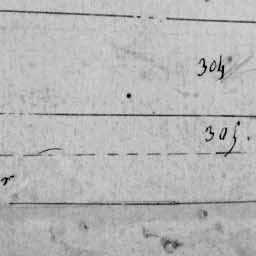 304
305.
r